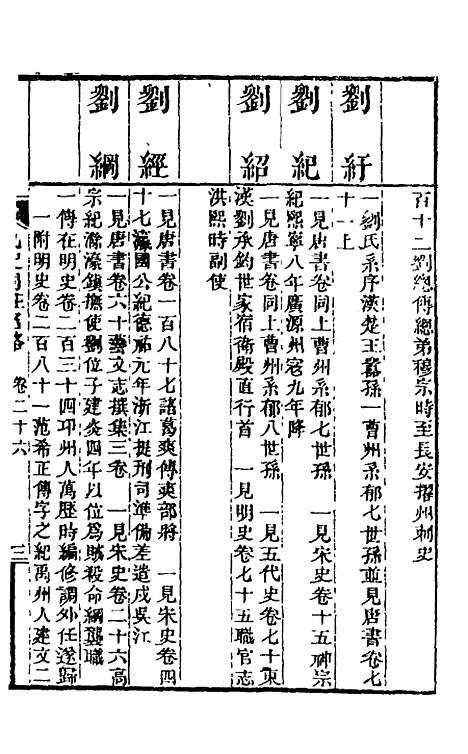 百十二劉總傳總弟穆宗時至長安擢州刺史
劉紆
一劉氏系序漢楚王囂孫一曹州系郁七世孫並見唐書卷七
十一上
劉紀
一見唐書卷同上曹州系郁七世孫　一見宋史卷十五神宗
紀熙寧八年廣源州寇九年降
劉紹
一見唐書卷同上曹州系郁八世孫　一見五代史卷七十東
漢劉承鈞世家宿衞殿直行首　一見明史卷七十五職官志
洪熙時副使
劉經
一見唐書卷一百八十七諸葛爽傳爽部將　一見宋史卷四
十七瀛國公紀德祐元年浙江提刑司準備差遣戍吳江
劉綱
一見唐書卷六十藝文志撰集三卷　一見宋史卷二十六高
宗紀滁濠鎮撫使劉位子建炎四年以位爲賊殺命綱襲職
一傳在明史卷二百三十四邛州人萬歷時編修調外任遂歸
一附明史卷二百八十一范希正傳字之紀禹州人建文二
卷二十六
三